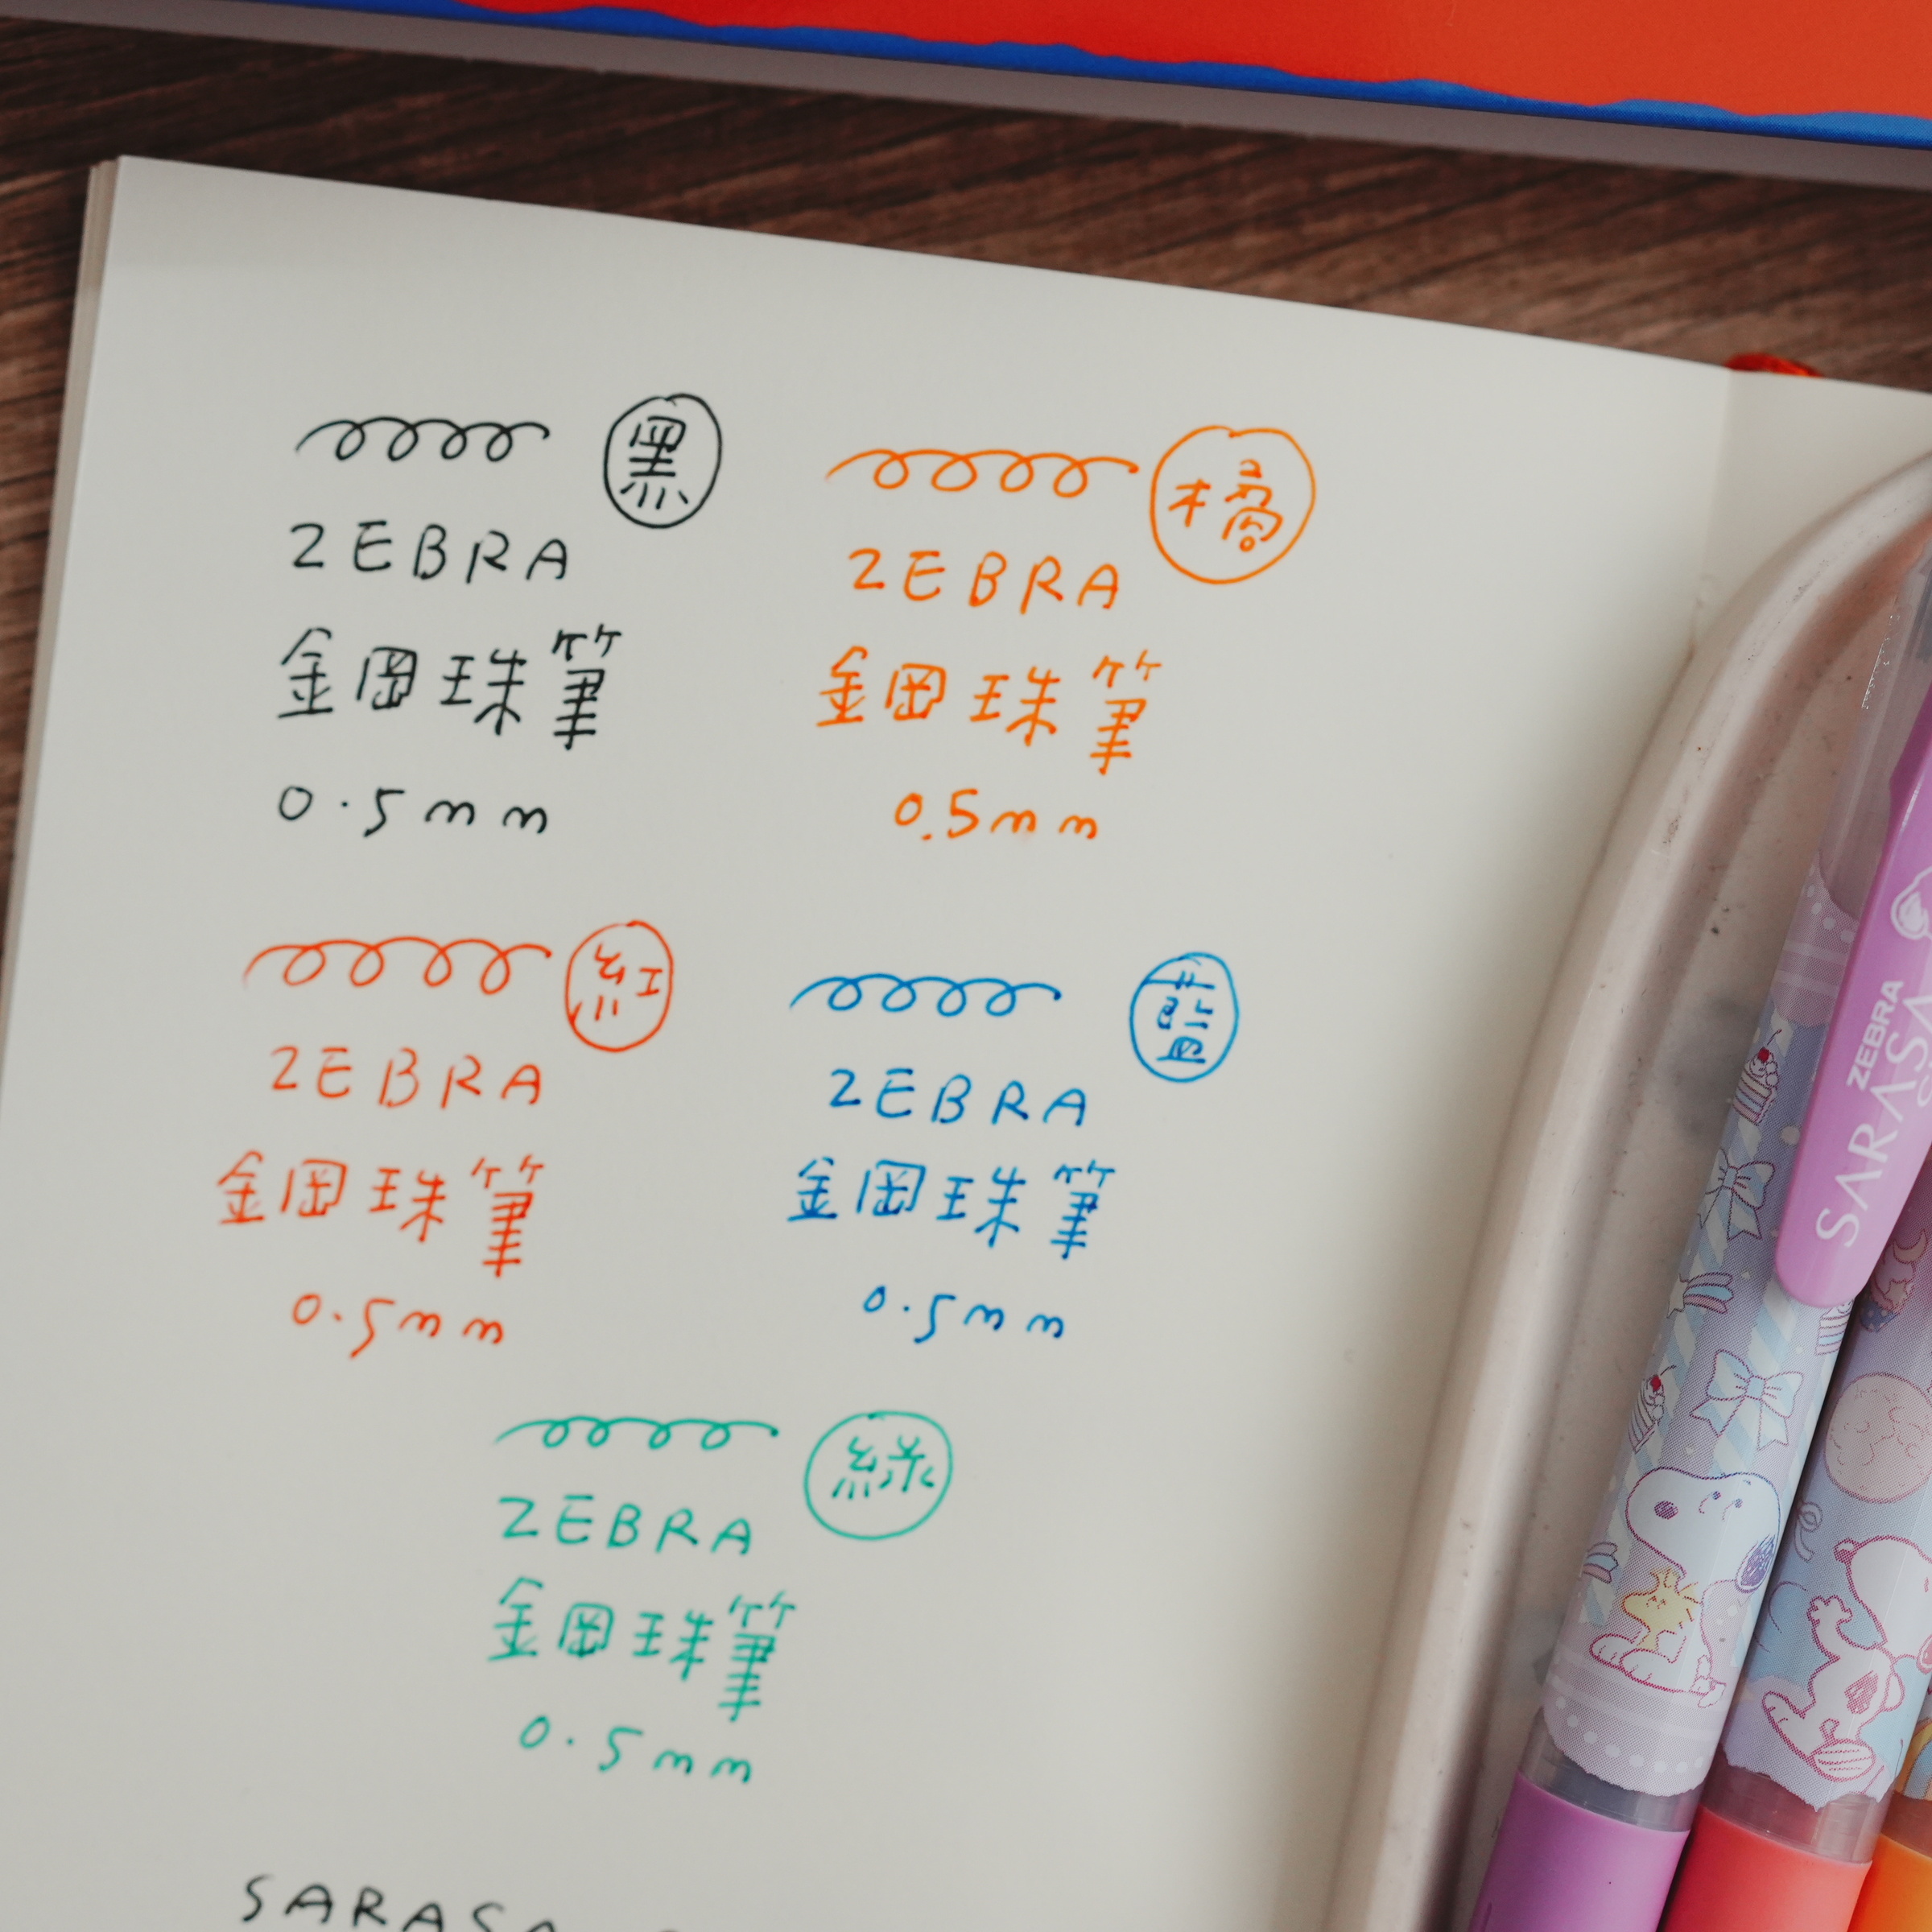 黑
ZEBRA
鋼珠筆
0.5mm
橘
ZEBRA
鋼珠筆
0.5mm
紅
ZEBRA
鋼珠筆
0.5mm
藍
ZEBRA
鋼珠筆
0.5mm
綠
ZEBRA
鋼珠筆
0.5mm
ZEBRA
SARASA